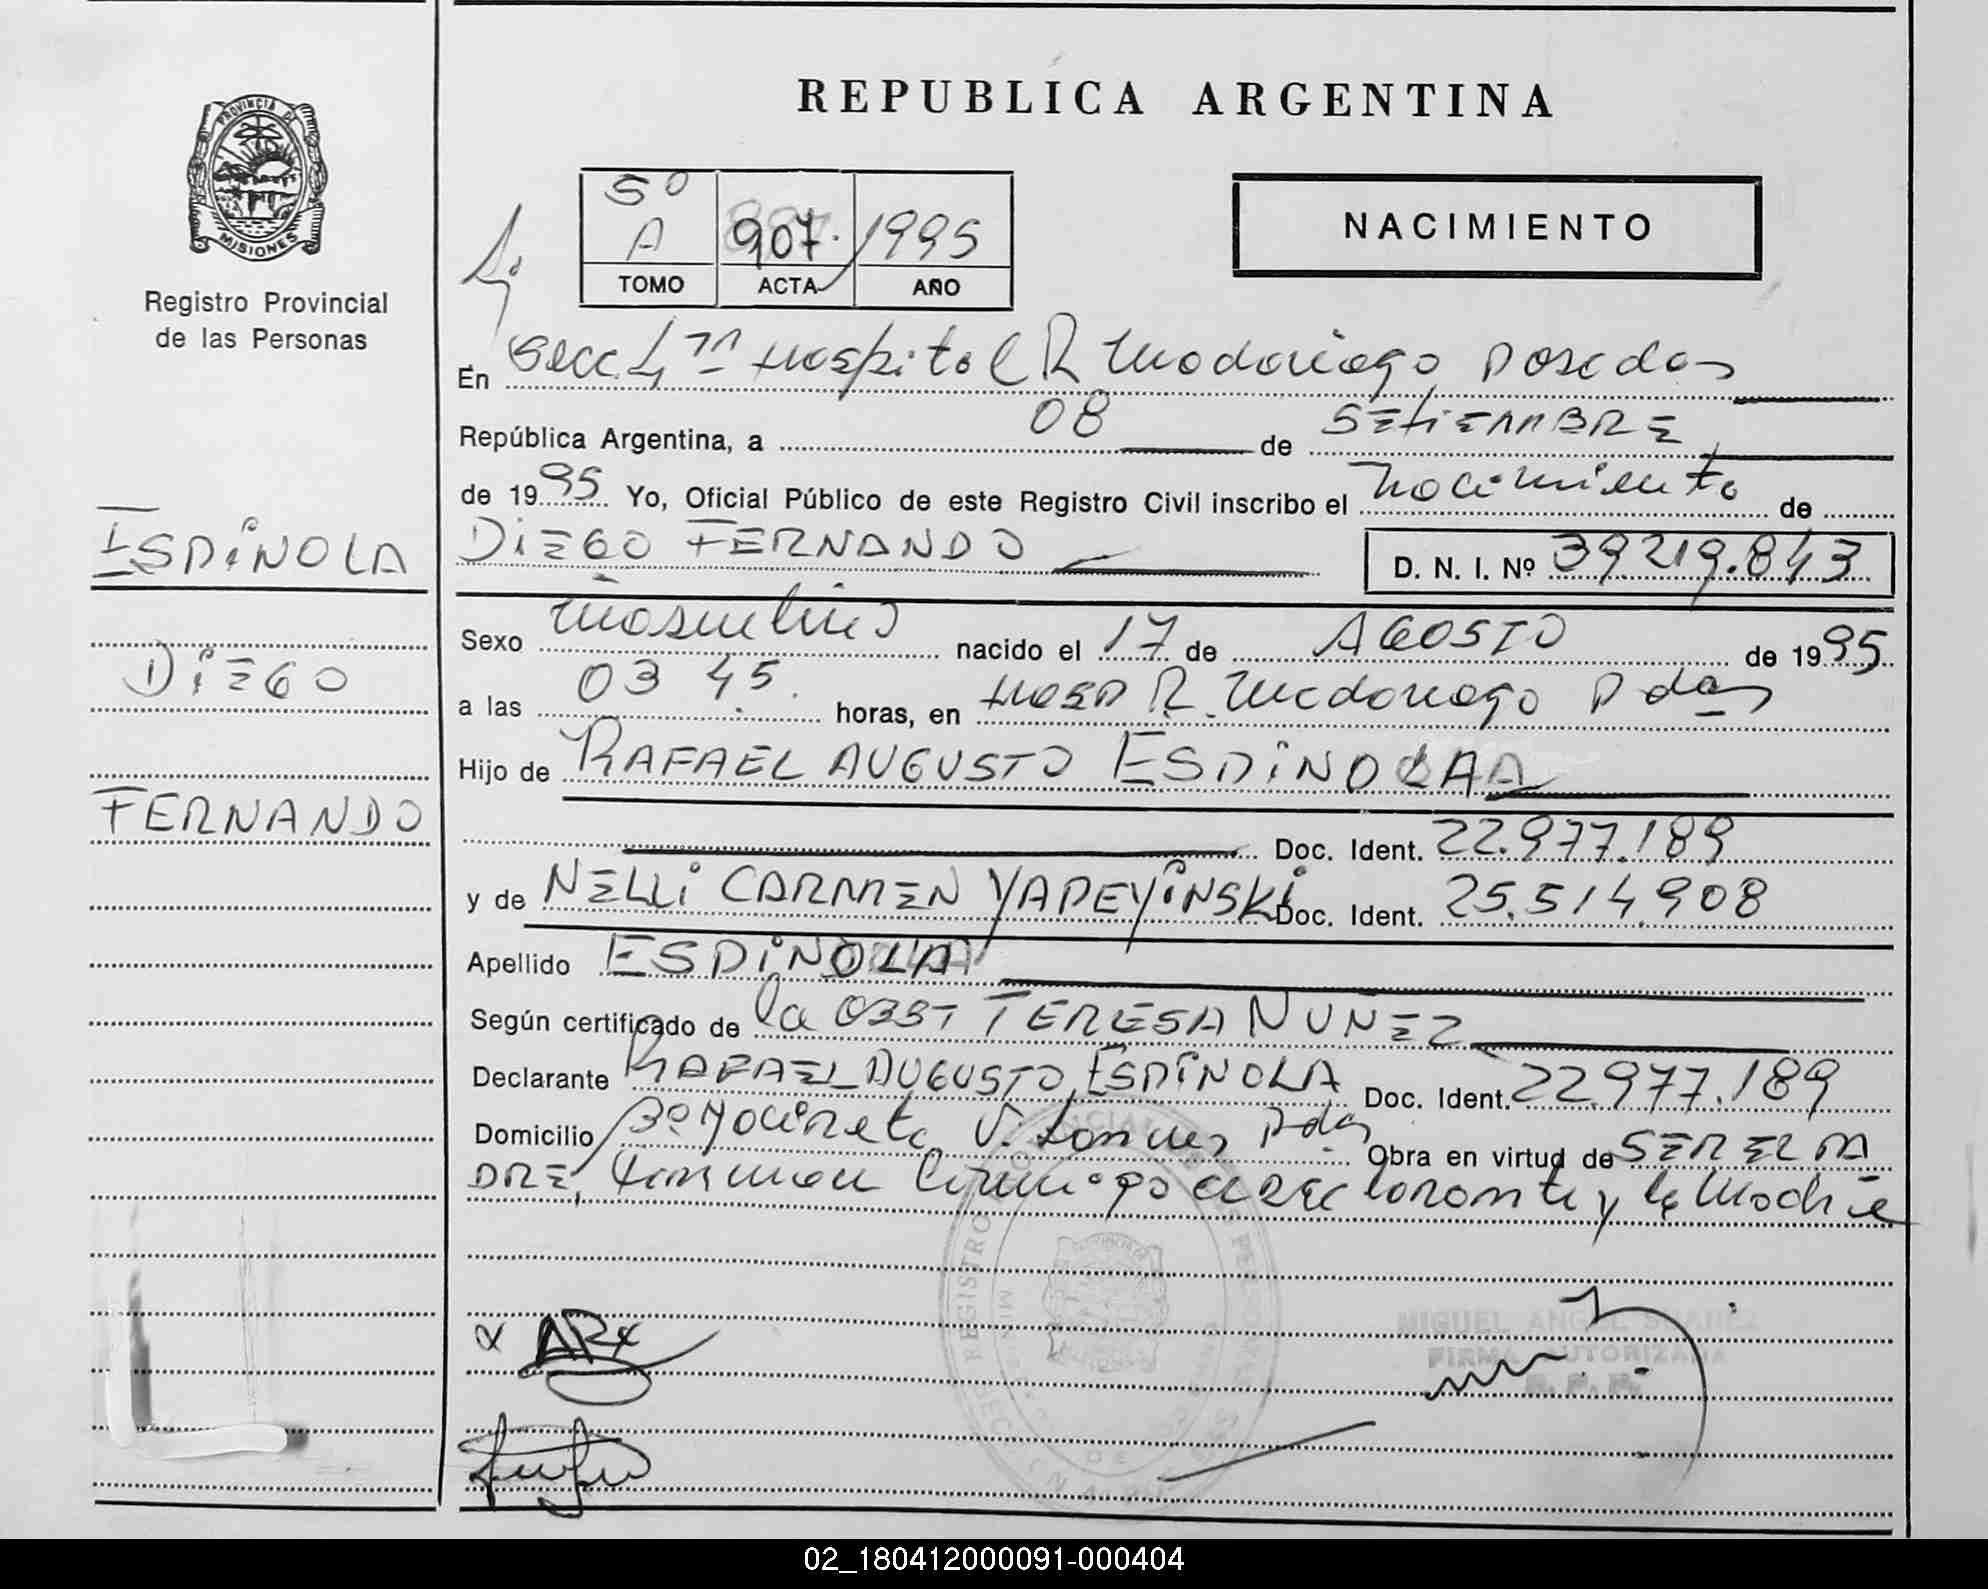 PROVINCIA DE
MISIONES
Registro Provincial
de las Personas
ESPíNOLA
DiEGO
FERNANDO
REPUBLICA ARGENTINA
5º
A 907. 1995
TOMO ACTA AÑO
NACIMIENTO
En Secc. 4ta Hospital R Madariaga Posadas
República Argentina, a 08 de SEtiEMBRE
de 1995 Yo, Oficial Público de este Registro Civil inscribo el Nacimiento de
DiEGO FERNANDO D. N. I. Nº 39219.843
Sexo Masculino nacido el 17 de AGOSTO de 1995
a las 03 45. horas, en Hosp R. Madariaga Pdas
Hijo de RAFAEL AUGUSTO ESPíNOLA
Doc. Ident. 22.977.189
y de NELLi CARMEN YAPEYiNSKi Doc. Ident. 25.514.908
Apellido ESPiNOLA
Según certificado de la OBST TERESA NUÑEZ
Declarante RAFAEL AUGUSTO ESPíNOLA Doc. Ident. 22977.189
Domicilio Bº Yacireta V. Pdas Obra en virtud de SER EL PA
DRE, Firman conmigo el declarante y la Madre
MIGUEL ANGEL SUAREZ
FIRMA AUTORIZADA
R. P. P.
02_180412000091-000404